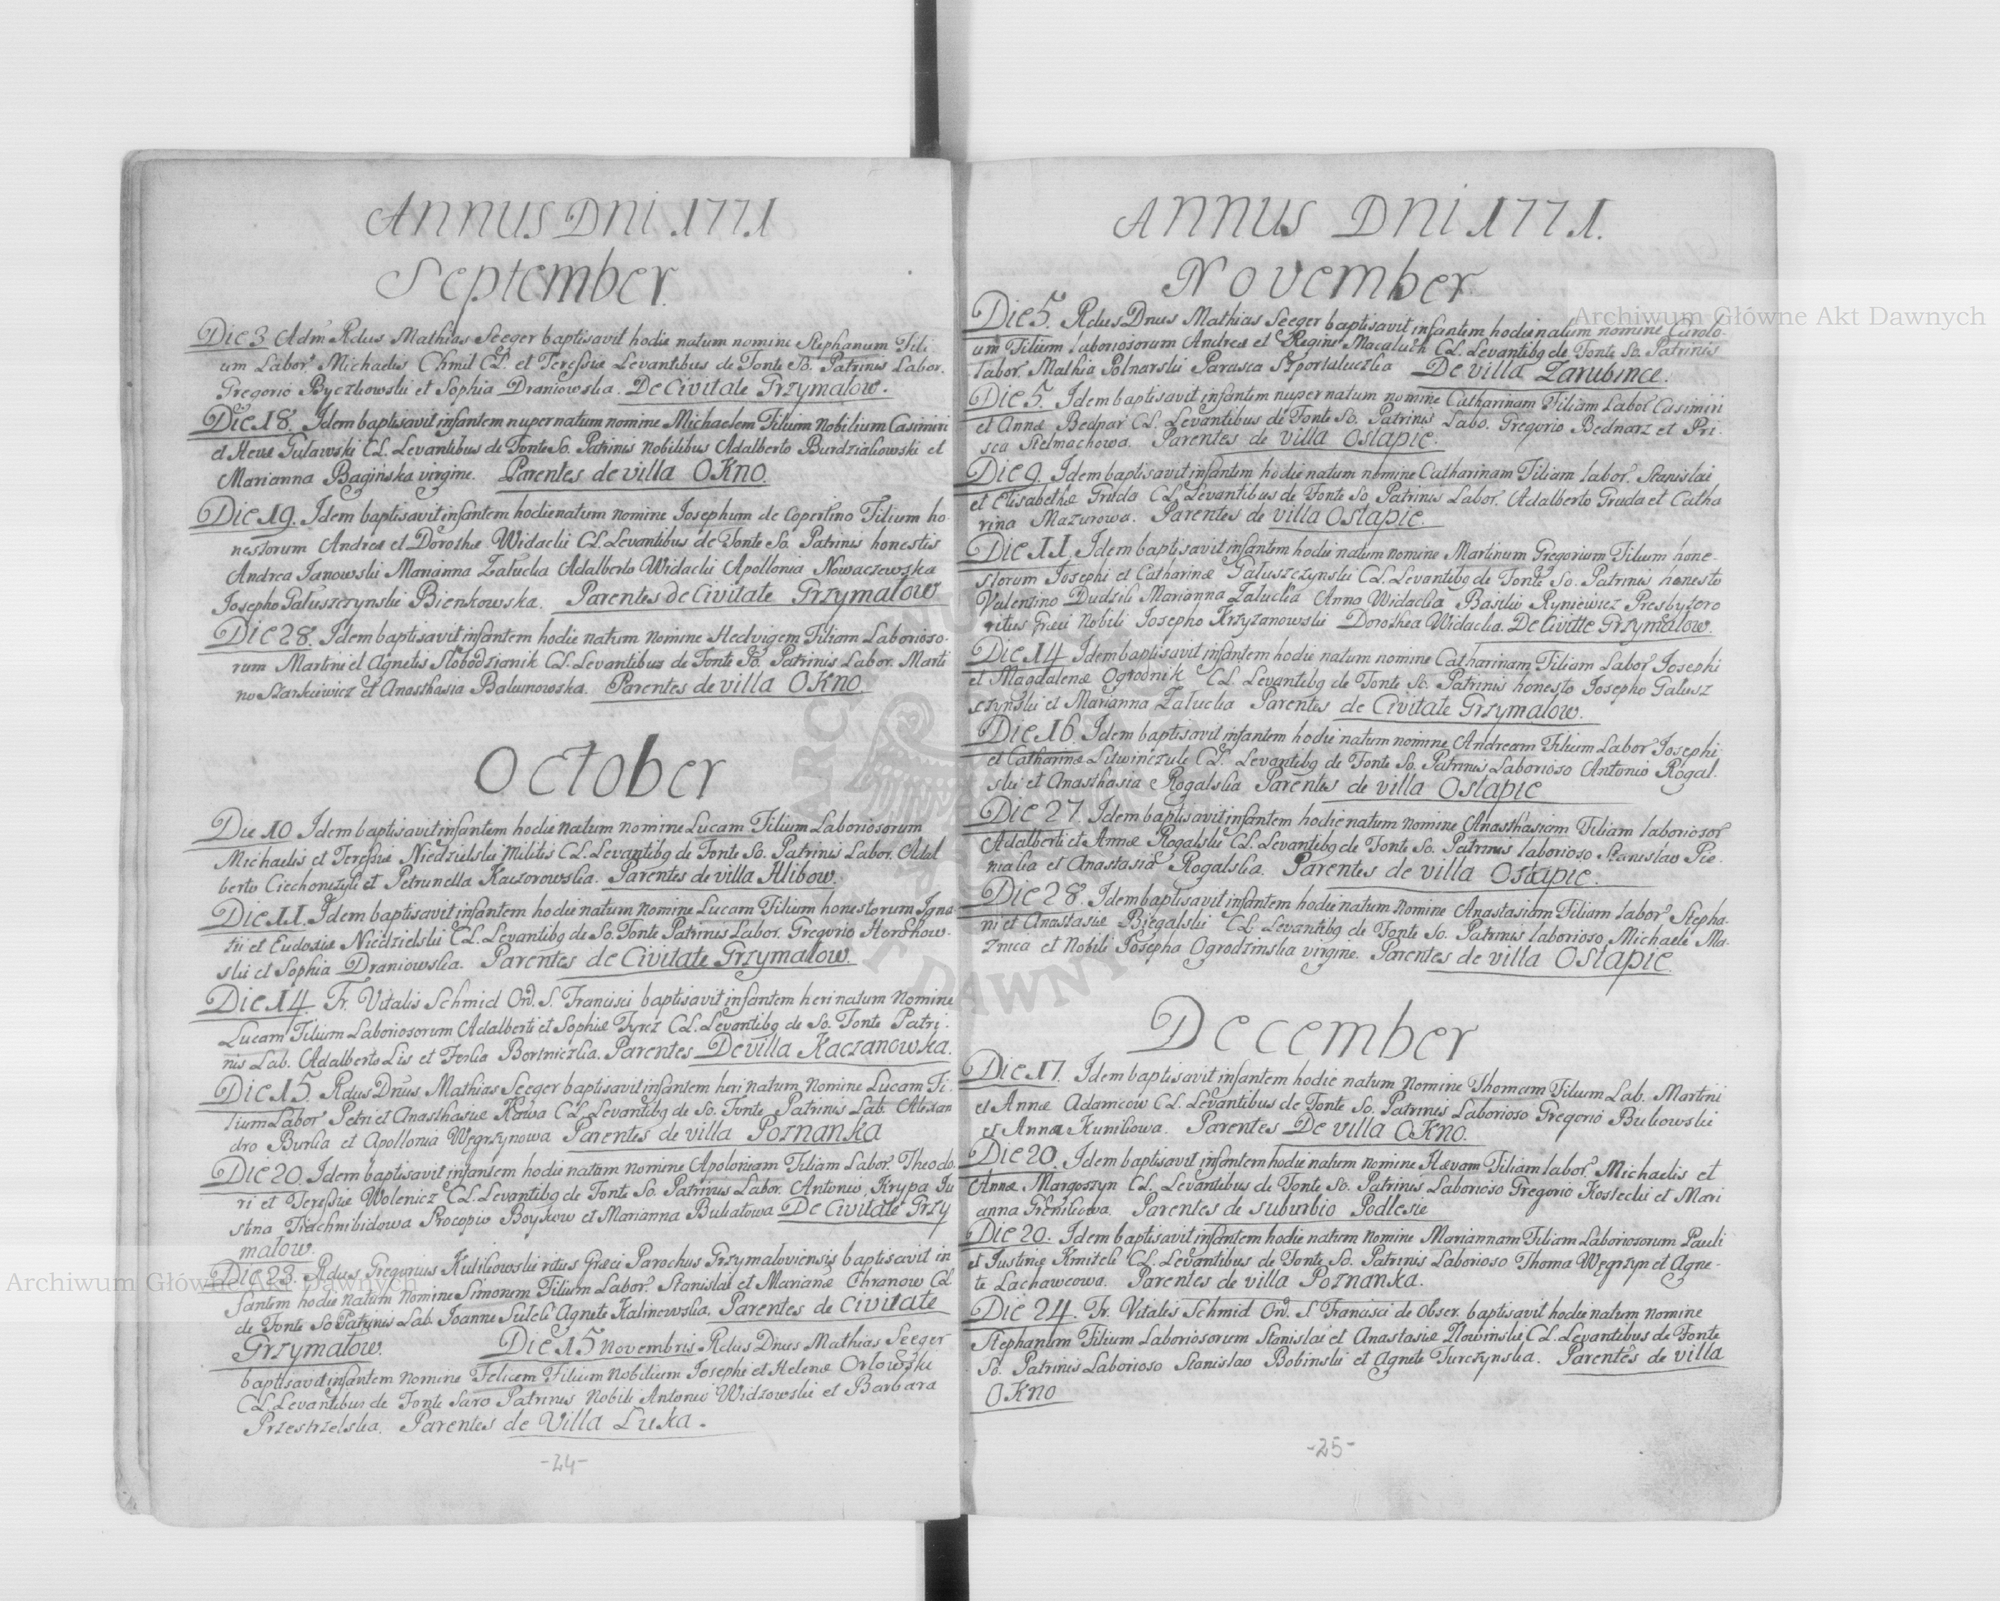 ANNUS DNI 1771
September.
Die 3 Adm Rdus Mathias Seeger baptisavit hodie natum nomine Stephanum Fili-
um Labor. Michaelis Chmil CL. et Teressiæ Levantibus de Fonte So. Patrinis Labor.
Gregorio Byczkowski et Sophia Draniowska. De Civitate Grzymalow.
Die 18. Idem baptisavit infantem nuper natum nomine Michaelem Filium Nobilium Casimiri
et Hevæ Gulawski CL. Levantibus de Fonte So. Patrinis Nobilibus Adalberto Burdziakowski et
Marianna Baginska virgine. Parentes de villa OKno.
Die 19. Idem baptisavit infantem hodie natum nomine Josephum de Copertino Filium ho-
nestorum Andreæ et Dorotheæ Widacki CL. Levantibus de Fonte So. Patrinis honestis
Andrea Janowski Marianna Zalucka Adalberto Widacki Apollonia Nowaczewska
Josepho Galuszczynski Bienkowska. Parentes de Civitate Grzymalow
Die 28. Idem baptisavit infantem hodie natum nomine Hedvigem Filiam Laborioso-
rum Martini et Agnetis Slobodzianik CL. Levantibus de Fonte So. Patrinis Labor. Marti
no Starkiewicz et Anasthasia Balunowska. Parentes de villa OKno.
October
Die 10 Idem baptisavit infantem hodie natum nomine Lucam Filium Laboriosorum
Michaelis et Teressiæ Niedzielski Militis CL. Levantibq de Fonte So. Patrinis Labor. Adal
berto Ciechonczyk et Petrunella Kaczorowska. Parentes de villa Hlibow.
Die 11. Idem baptisavit infantem hodie natum nomine Lucam Filium honestorum Igna
tii et Eudosiæ Niedzielski CL. Levantibq de So. Fonte Patrinis Labor. Gregorio Horchow-
ski et Sophia Draniowska. Parentes de Civitate Grzymalow.
Die 14. Fr. Vitalis Schmid Ord. S. Francisci baptisavit infantem heri natum Nomine
Lucam Filium Laboriosorum Adalberti et Sophiæ Tyrcz CL. Levantibq de So. Fonte Patri-
nis Lab. Adalberto Lis et Bortniczka. Parentes De villa Kaczanowka.
Die 15. Rdus Dnus Mathias Seeger baptisavit infantem heri natum Nomine Lucam Fi-
lium Labor Petri et Anasthasiæ Kawa CL. Levantibq de So. Fonte Patrinis Lab. Alexan
dro Burka et Apollonia Węgrzynowa Parentes de villa Poznanka
Die 20. Idem baptisavit infantem hodie natam nomine Apoloniam Filiam Labor. Theodo
ri et Teressiæ Wolenicz CL. Levantibq de Fonte So. Patrinis Labor. Antonio Krypa Ju
stina Procopio Boykow et Marianna Bukatowa De Civitate Grzy
malow.
Die 23. Rdus Gregorius Kulikowski ritus Græci Parochus Grzymaloviensis baptisavit in
fantem hodie natum nomine Simonem Filium Labor. Stanislai et Marianæ Chranow CL
de Fonte So Patrinis Lab. Joanne Suteli Agnete Kalinowska. Parentes de Civitate
Grzymalow. Die 15 Novembris Rdus Dnus Mathias Seeger
baptisavit infantem nomine Felicem Filium Nobilium Josephi et Helenæ Orlowski
CL. Levantibus de Fonte Sacro Patrinis Nobili Antonio Widzowski et Barbara
Przestrzelska. Parentes de Villa Luka.
-24-
ANNUS DNI 1771.
November.
Die 5. Rdus Dnus Mathias Seeger baptisavit infantem hodie natum nomine Carolo-
um Filium laboriosorum Andreæ et Reginæ Macaluch CL. Levantibq de Fonte So. Patrinis
labor. Mathia Polnarski Parasca Szportaluczka De villa Zarubince.
Die 5. Idem baptisavit infantem nuper natum nomine Catharinam Filiam Labor Casimiri
et Annæ Bednar CL. Levantibus de Fonte So. Patrinis Labo. Gregorio Bednarz et Pri-
sca Stelmachowa. Parentes de villa Ostapie.
Die 9. Idem baptisavit infantem hodie natum nomine Catharinam Filiam labor. Stanislai
et Elisabethæ Gruda CL. Levantibus de Fonte So Patrinis Labor. Adalberto Gruda et Catha
rina Mazurowa. Parentes de villa Ostapie.
Die 11. Idem baptisavit infantem hodie natum nomine Martinum Gregorium Filium hone-
storum Josephi et Catharinæ Galuszczynski CL. Levantibq de Fonte So. Patrinis honesto
Valentino Dudzik Marianna Zalucka Anna Widacka Basilio Ryniewicz Presbytero
ritus Græci Nobili Josepho Krzyzanowski Dorothea Widacka. De Civitte Grzymalow.
Die 14 Idem baptisavit infantem hodie natum nomine Catharinam Filiam Labor Josephi
et Magdalenæ Ogrodnik CL. Levantibq de Fonte So. Patrinis honesto Josepho Galusz
czynski et Marianna Zalucka Parentes de Civitate Grzymalow.
Die 16. Idem baptisavit infantem hodie natum nomine Andream Filium Labor Josephi
et Catharinæ Litwinczuk CL. Levantibq de Fonte So. Patrinis Laborioso Antonio Rogal-
ski et Anasthasia Rogalska Parentes de villa Ostapie
Die 27. Idem baptisavit infantem hodie natum nomine Anasthasiam Filiam laborioso
Adalberti et Annæ Rogalski CL. Levantibq de Fonte So. Patrinis laborioso Stanislao Pie-
niaka et Anastasia Rogalska. Parentes de villa Ostapie.
Die 28. Idem baptisavit infantem hodie natum nomine Anastasiam Filiam labor. Stepha-
ni et Anastasiæ Biegalski CL. Levantibq de Fonte So. Patrinis laborioso Michaele Ma-
znica et Nobili Josepha Ogrodzinska virgine. Parentes de villa Ostapie.
December
Die 17. Idem baptisavit infantem hodie natum nomine Thomam Filium Lab. Martini
et Annæ Adamcow CL. Levantibus de Fonte So. Patrinis Laborioso Gregorio Bukowski
et Anna Kunikowa. Parentes De villa OKno.
Die 20. Idem baptisavit infantem hodie natum nomine Hævam Filiam labor. Michaelis et
Annæ Margoszyn CL. Levantibus de Fonte So. Patrinis Laborioso Gregorio Kostecki et Mari
anna Premikowa. Parentes de suburbio Podlesie
Die 20. Idem baptisavit infantem hodie natum nomine Mariannam Filiam Laboriosorum Pauli
et Justinæ Kmiteli CL. Levantibus de Fonte So. Patrinis Laborioso Thoma Węgrzyn et Agne-
te Lachawcowa. Parentes de villa Poznanka.
Die 24. Fr. Vitalis Schmid Ord. S Francisci de Obser. baptisavit hodie natum nomine
Stephanum Filium Laboriosorum Stanislai et Anastasiæ Ilowinski CL. Levantibus de Fonte
So. Patrinis Laborioso Stanislao Bobinski et Agnete Turczynska. Parentes de villa
OKno
-25-
Archiwum Główne Akt Dawnych
Archiwum Główne Akt Dawnych